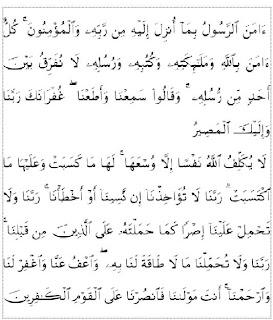 ءَامَنَ ٱلرَّسُولُ بِمَآ أُنزِلَ إِلَيْهِ مِن رَّبِّهِۦ وَٱلْمُؤْمِنُونَ ۚ كُلٌّ
ءَامَنَ بِٱللَّهِ وَمَلَـٰٓئِكَتِهِۦ وَكُتُبِهِۦ وَرُسُلِهِۦ لَا نُفَرِّقُ بَيْنَ
أَحَدٍ مِّن رُّسُلِهِۦ ۚ وَقَالُوا۟ سَمِعْنَا وَأَطَعْنَا ۖ غُفْرَانَكَ رَبَّنَا
وَإِلَيْكَ ٱلْمَصِيرُ
لَا يُكَلِّفُ ٱللَّهُ نَفْسًا إِلَّا وُسْعَهَا ۚ لَهَا مَا كَسَبَتْ وَعَلَيْهَا مَا
ٱكْتَسَبَتْ ۗ رَبَّنَا لَا تُؤَاخِذْنَآ إِن نَّسِينَآ أَوْ أَخْطَأْنَا ۚ رَبَّنَا وَلَا
تَحْمِلْ عَلَيْنَآ إِصْرًا كَمَا حَمَلْتَهُۥ عَلَى ٱلَّذِينَ مِن قَبْلِنَا ۚ
رَبَّنَا وَلَا تُحَمِّلْنَا مَا لَا طَاقَةَ لَنَا بِهِۦ ۖ وَٱعْفُ عَنَّا وَٱغْفِرْ لَنَا
وَٱرْحَمْنَآ ۚ أَنتَ مَوْلَىٰنَا فَٱنصُرْنَا عَلَى ٱلْقَوْمِ ٱلْكَـٰفِرِينَ